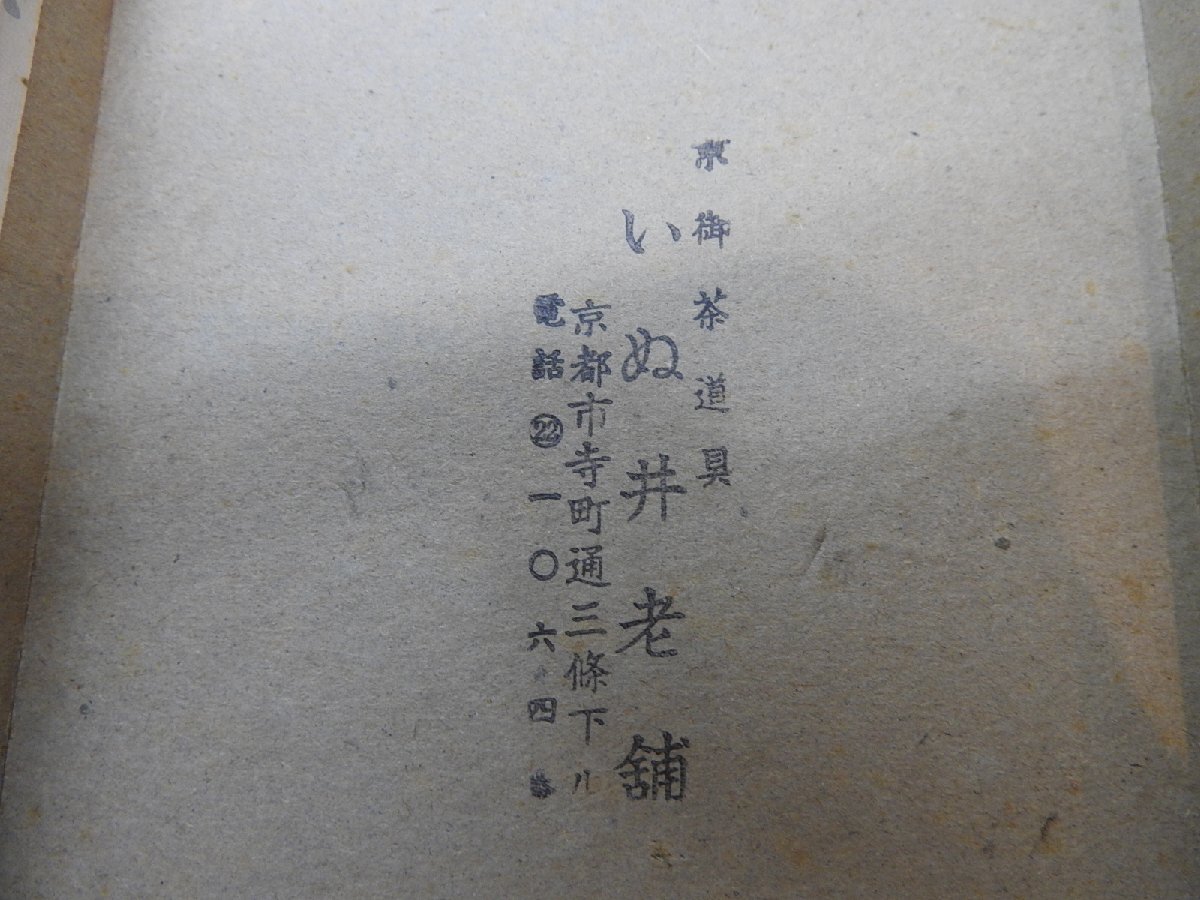 京御茶道具
いぬ井老舗
京都市寺町通三條下ル
電話㉒一〇六四番